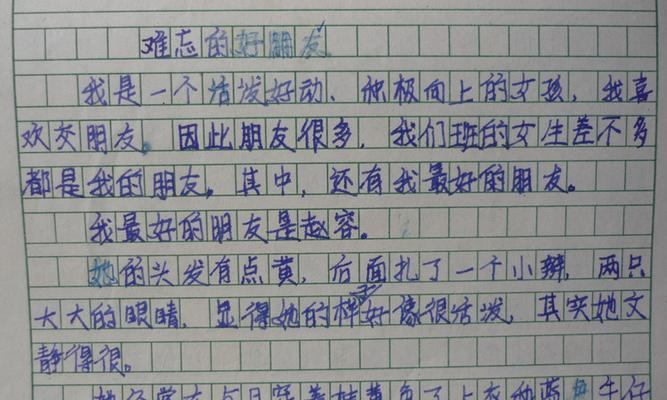 难忘的好朋友
我是一个活泼好动、积极向上的女孩，我喜
欢交朋友。因此朋友很多，我们班的女生差不多
都是我的朋友。其中，还有我最好的朋友。
我最好的朋友是赵容。
她的头发有点黄，后面扎了一个小辫，两只
大大的眼睛，显得她的样子好像很活泼，其实她文
静得很。